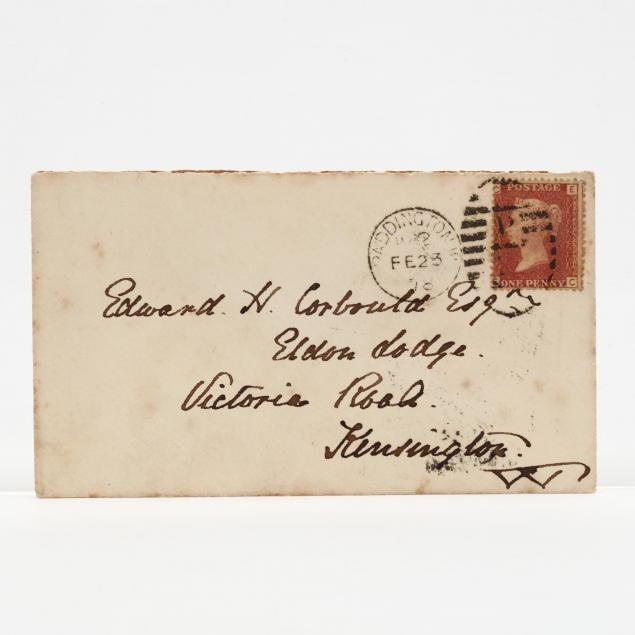 POSTAGE
E
ONE PENNY
C
PADDINGTON W
FE 23
78
Edward H. Corbould Esqre
Eldon Lodge.
Victoria Road.
Kensington.
W